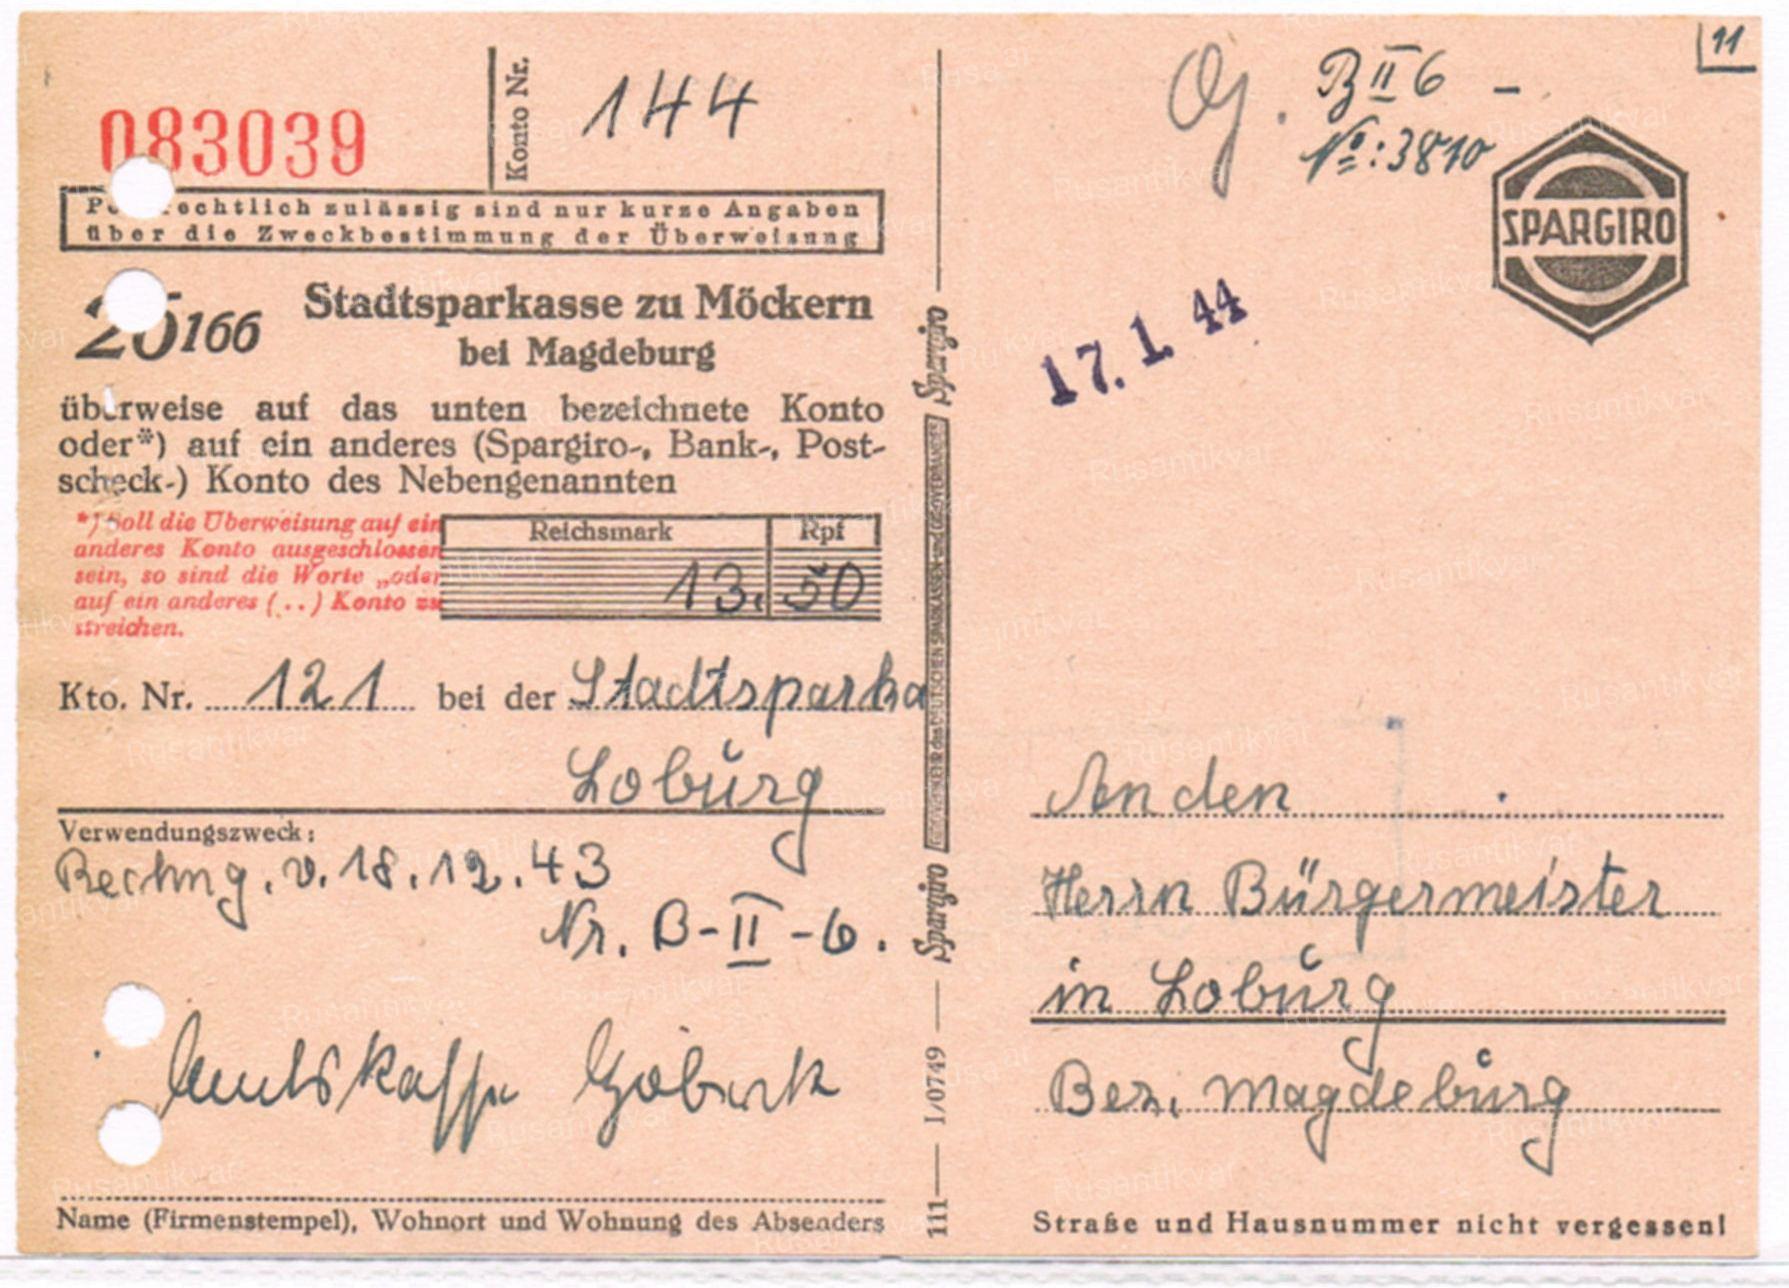 083039
Konto Nr. 144
rechtlich zulässig sind nur kurze Angaben
über die Zweckbestimmung der Überweisung
166
Stadtsparkasse zu Möckern
bei Magdeburg
überweise auf das unten bezeichnete Konto
oder*) auf ein anderes (Spargiro-, Bank-, Post-
scheck-) Konto des Nebengenannten
*) Soll die Überweisung auf ein
anderes Konto ausgeschlossen
sein, so sind die Worte „oder
auf ein anderes (..) Konto zu
streichen.
Reichsmark Rpf
13. 50
Kto. Nr. 121 bei der Stadtsparka
Loburg
Verwendungszweck:
Rechng. v. 18.12.43
Nr. B-II-6.
Amtskasse
Name (Firmenstempel), Wohnort und Wohnung des Absenders
Spargiro
Spargiro
111 — I/0749
11
B II 6 -
No: 3810
SPARGIRO
17. 1. 44
An den
Herrn Bürgermeister
in Loburg
Bez. Magdeburg
Straße und Hausnummer nicht vergessen!
Rusantikvar